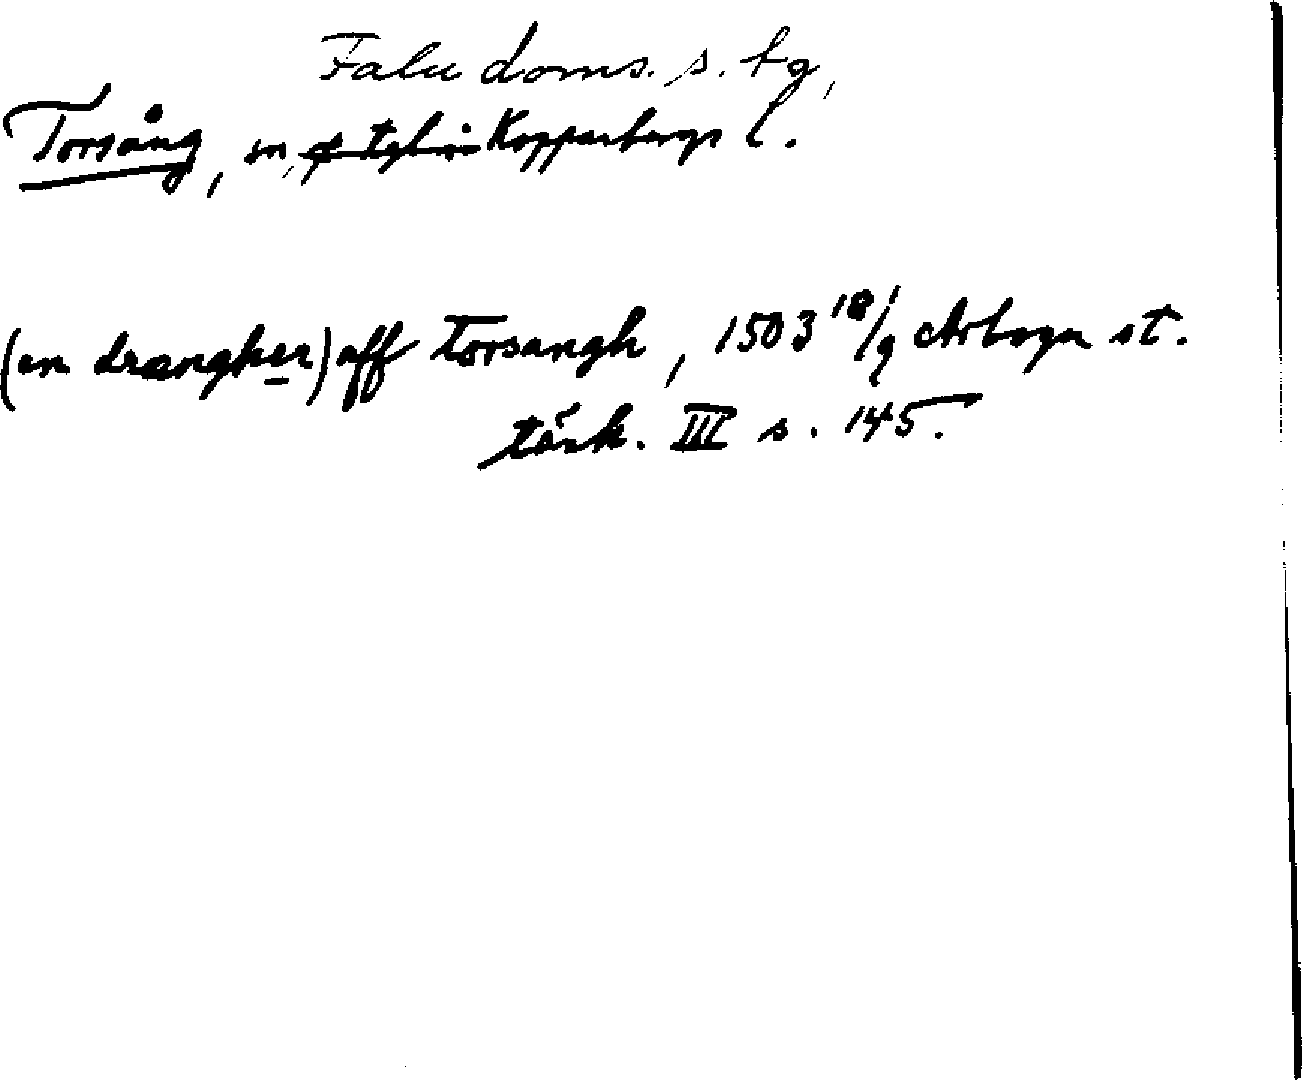 Falu doms. s. tg,
Torsång, sn, Kopparbergs l.
(en drængher) aff Torsangh, 1503 18/9 Arboga st.
tänk. III s. 145.